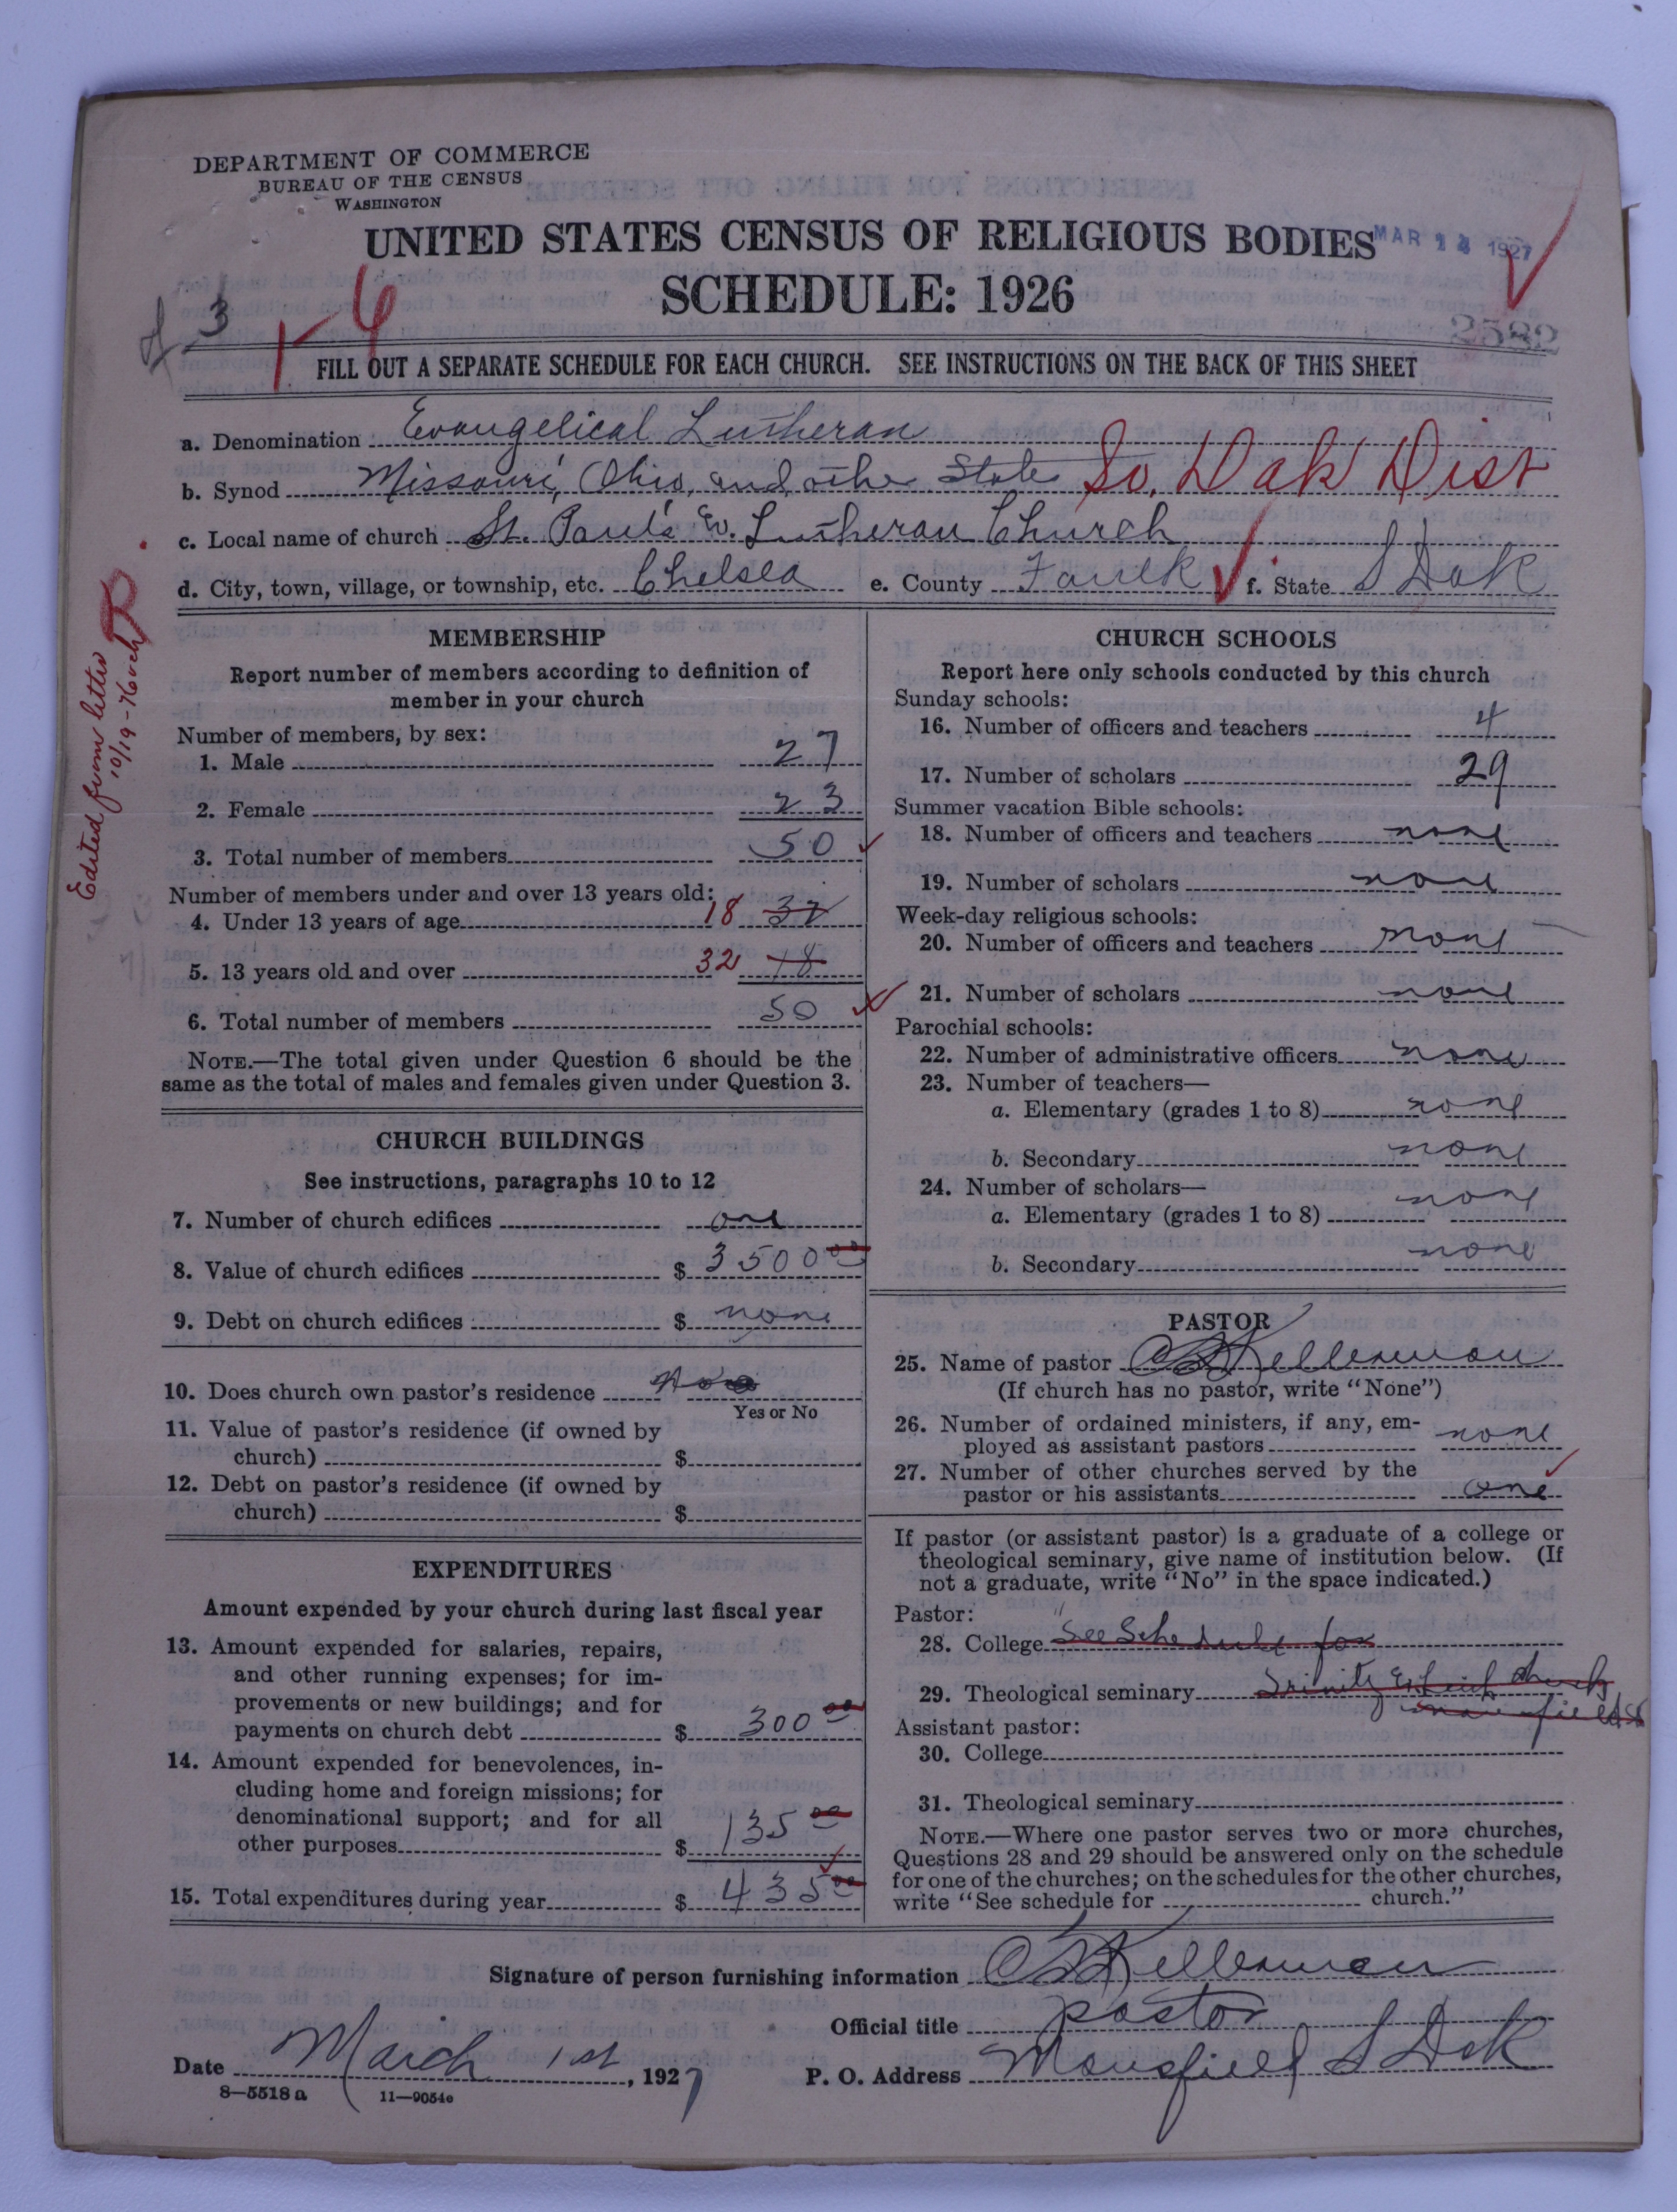 DEPARTMENT OF COMMERCE
BUREAU OF THE CENSUS
WASHINGTON
UNITED STATES CENSUS OF RELIGIOUS BODIES
MAR 14 1927
SCHEDULE: 1926
3
1-6
2582
FILL OUT A SEPARATE SCHEDULE FOR EACH CHURCH. SEE INSTRUCTIONS ON THE BACK OF THIS SHEET
a. Denomination Evangelical Lutheran
b. Synod Missouri, Ohio, and other State So. Dak Dist
c. Local name of church St. Paul's Ev. Lutheran Church
d. City, town, village, or township, etc. Chelsea e. County Faulk f. State S Dak
Edited from letter
10/19-76
MEMBERSHIP
Report number of members according to definition of
member in your church
Number of members, by sex:
1. Male 27
2. Female 23
3. Total number of members 50
Number of members under and over 13 years old:
4. Under 13 years of age 18 32
5. 13 years old and over 32 18
6. Total number of members 50
NOTE.—The total given under Question 6 should be the
same as the total of males and females given under Question 3.
CHURCH BUILDINGS
See instructions, paragraphs 10 to 12
7. Number of church edifices one
8. Value of church edifices $ 3500 00
9. Debt on church edifices $ none
10. Does church own pastor's residence No
Yes or No
11. Value of pastor's residence (if owned by
church) $
12. Debt on pastor's residence (if owned by
church) $
EXPENDITURES
Amount expended by your church during last fiscal year
13. Amount expended for salaries, repairs,
and other running expenses; for im-
provements or new buildings; and for
payments on church debt $ 300 00
14. Amount expended for benevolences, in-
cluding home and foreign missions; for
denominational support; and for all
other purposes $ 135 00
15. Total expenditures during year $ 435 00
CHURCH SCHOOLS
Report here only schools conducted by this church
Sunday schools:
16. Number of officers and teachers 4
17. Number of scholars 29
Summer vacation Bible schools:
18. Number of officers and teachers none
19. Number of scholars none
Week-day religious schools:
20. Number of officers and teachers none
21. Number of scholars none
Parochial schools:
22. Number of administrative officers none
23. Number of teachers—
a. Elementary (grades 1 to 8) none
b. Secondary none
24. Number of scholars—
a. Elementary (grades 1 to 8) none
b. Secondary none
PASTOR
25. Name of pastor Kellerman
(If church has no pastor, write "None")
26. Number of ordained ministers, if any, em-
ployed as assistant pastors none
27. Number of other churches served by the
pastor or his assistants one
If pastor (or assistant pastor) is a graduate of a college or
theological seminary, give name of institution below. (If
not a graduate, write "No" in the space indicated.)
Pastor:
28. College "See Schedule for
29. Theological seminary Trinity Ev Luth Church
Mansfield S
Assistant pastor:
30. College
31. Theological seminary
NOTE.—Where one pastor serves two or more churches,
Questions 28 and 29 should be answered only on the schedule
for one of the churches; on the schedules for the other churches,
write "See schedule for church."
Signature of person furnishing information Kellerman
Official title pastor
Date March 1st, 1927 P. O. Address Mansfield S Dak
8—5518 a 11—9054e